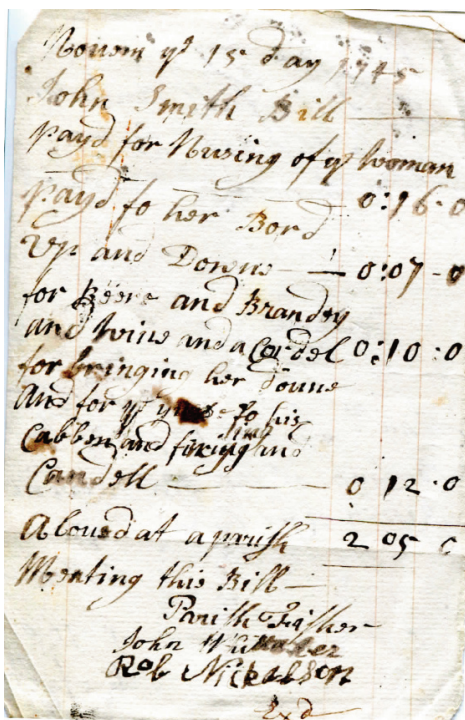 Novem ye 15 day 1745
John Smith Bill
payd for Nusing of ye woman
0:16-0
payd fo her Bord
up and Downe 0:07-0
for Beere and Brandey
and wine and a Cordel 0:10:0
for bringing her doune
And for ye fo his
Cabben and and
Candell 0 12:0
Aloued at a parish 2 05 0
Meating this Bill
Parish Fisher
John
Rob Nickalson
Exd